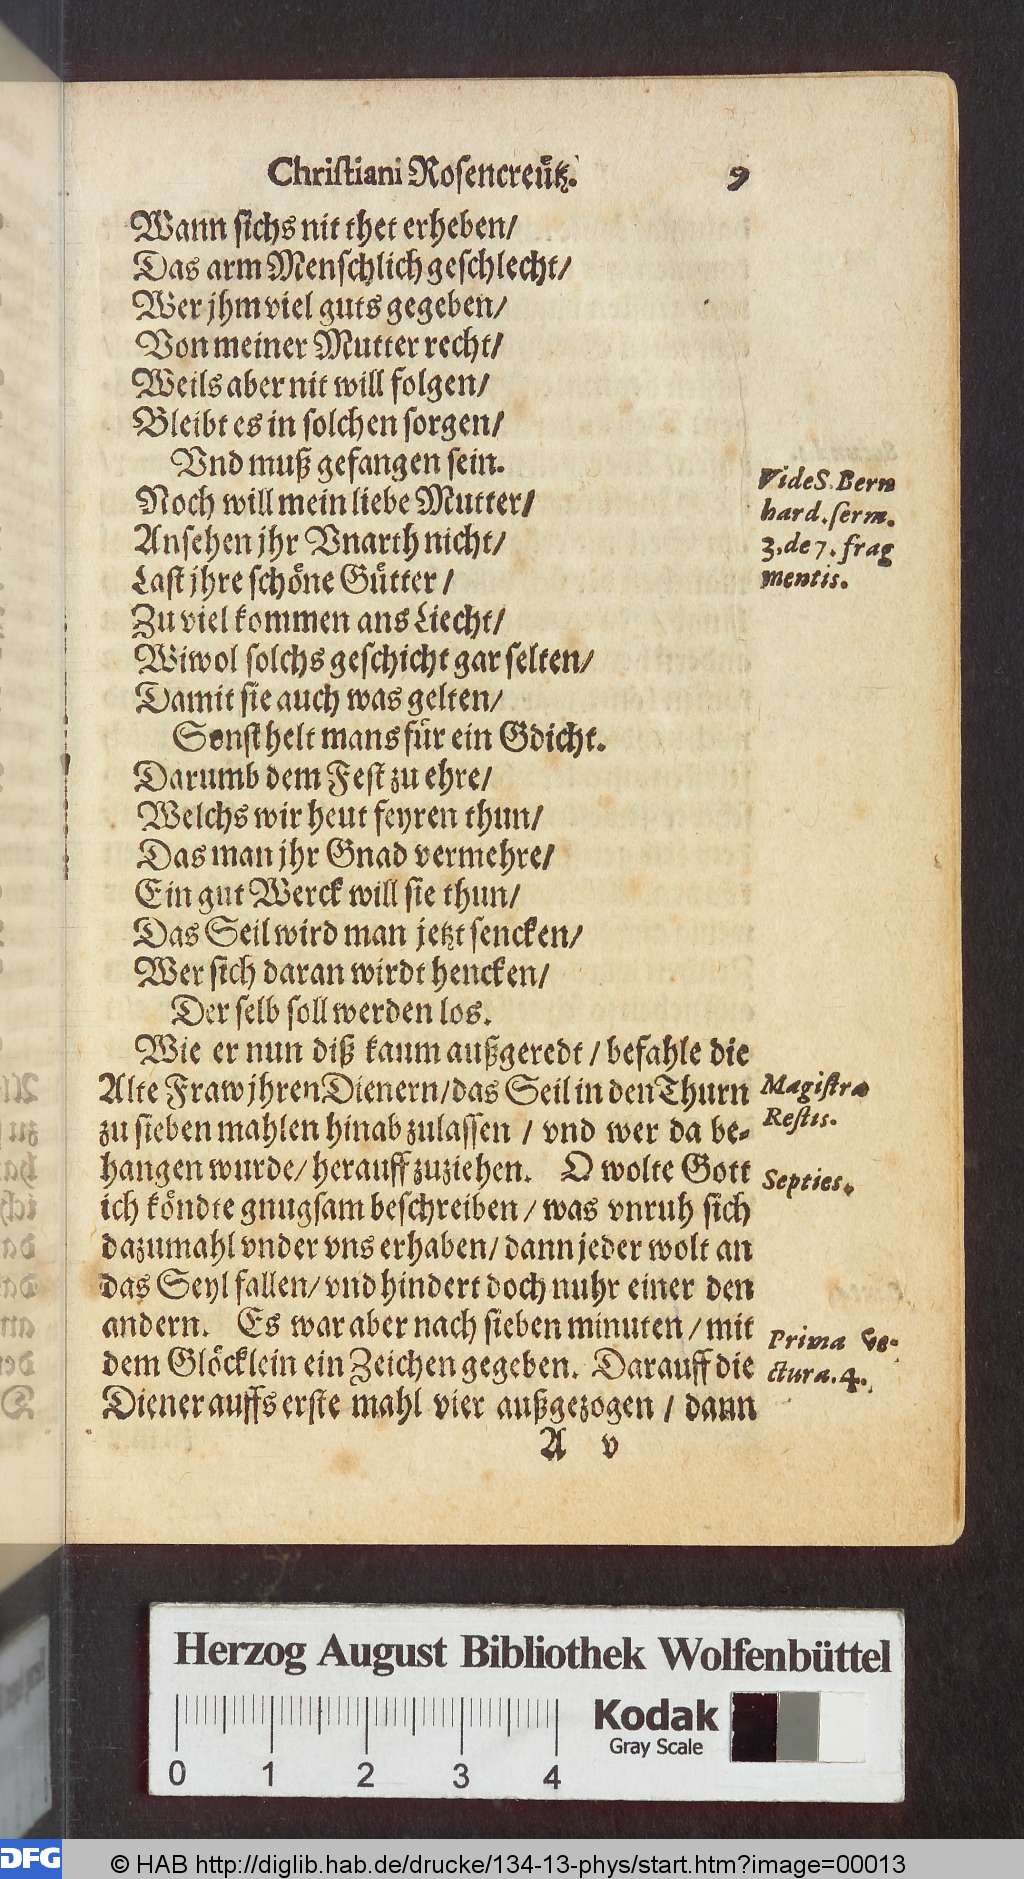 Christiani Rosencreütz. 9
Wann sichs nit thet erheben/
Das arm Menschlich geschlecht/
Wer jhm viel guts gegeben/
Von meiner Mutter recht/
Weils aber nit will folgen/
Bleibt es in solchen sorgen/
Vnd muß gefangen sein.
Noch will mein liebe Mutter/
Ansehen jhr Vnarth nicht/
Last jhre schöne Gütter/
Zu viel kommen ans Liecht/
Wiwol solchs geschicht gar selten/
Damit sie auch was gelten/
Sonst helt mans für ein Gdicht.
Darumb dem Fest zu ehre/
Welchs wir heut feyren thun/
Das man jhr Gnad vermehre/
Ein gut Werck will sie thun/
Das Seil wird man jetzt sencken/
Wer sich daran wirdt hencken/
Der selb soll werden los.
Wie er nun diß kaum außgeredt/ befahle die
Alte Fraw jhren Dienern/das Seil in den Thurn
zu sieben mahlen hinab zulassen / vnd wer da be-
hangen wurde/ herauff zuziehen. O wolte Gott
ich köndte gnugsam beschreiben/ was vnruh sich
dazumahl vnder vns erhaben/ dann jeder wolt an
das Seyl fallen/ vnd hindert doch nuhr einer den
andern. Es war aber nach sieben minuten/ mit
dem Glöcklein ein Zeichen gegeben. Darauff die
Diener auffs erste mahl vier außgezogen / dann
A v
Vide S. Bern
hard. serm.
3. de 7. frag
mentis.
Magistra
Restis.
Septies.
Prima Ve-
ctura. 4.
Herzog August Bibliothek Wolfenbüttel
Kodak
Gray Scale
0 1 2 3 4
DFG
© HAB http://diglib.hab.de/drucke/134-13-phys/start.htm?image=00013